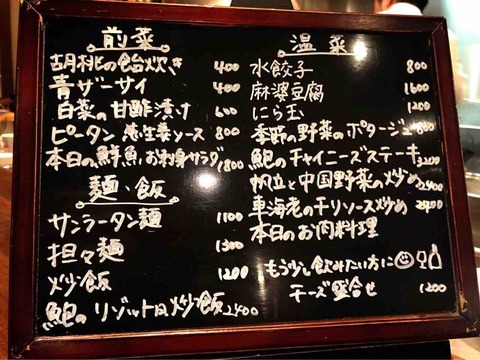 前菜
胡桃の飴炊き 400
青ザーサイ 400
白菜の甘酢漬け 600
ピータン 葱生姜ソース 800
本日の鮮魚お刺身サラダ 1800
麺・飯
サンラータン麺 1100
担々麺 1300
炒飯 1200
鮑のリゾット風炒飯 2400
温菜
水餃子 800
麻婆豆腐 1600
にら玉 1200
季節の野菜のポタージュ 800
鮑のチャイニーズステーキ 3200
帆立と中国野菜の炒め 2400
車海老のチリソース炒め 2400
本日のお肉料理
もう少し飲みたい方に
チーズ盛合せ 1200